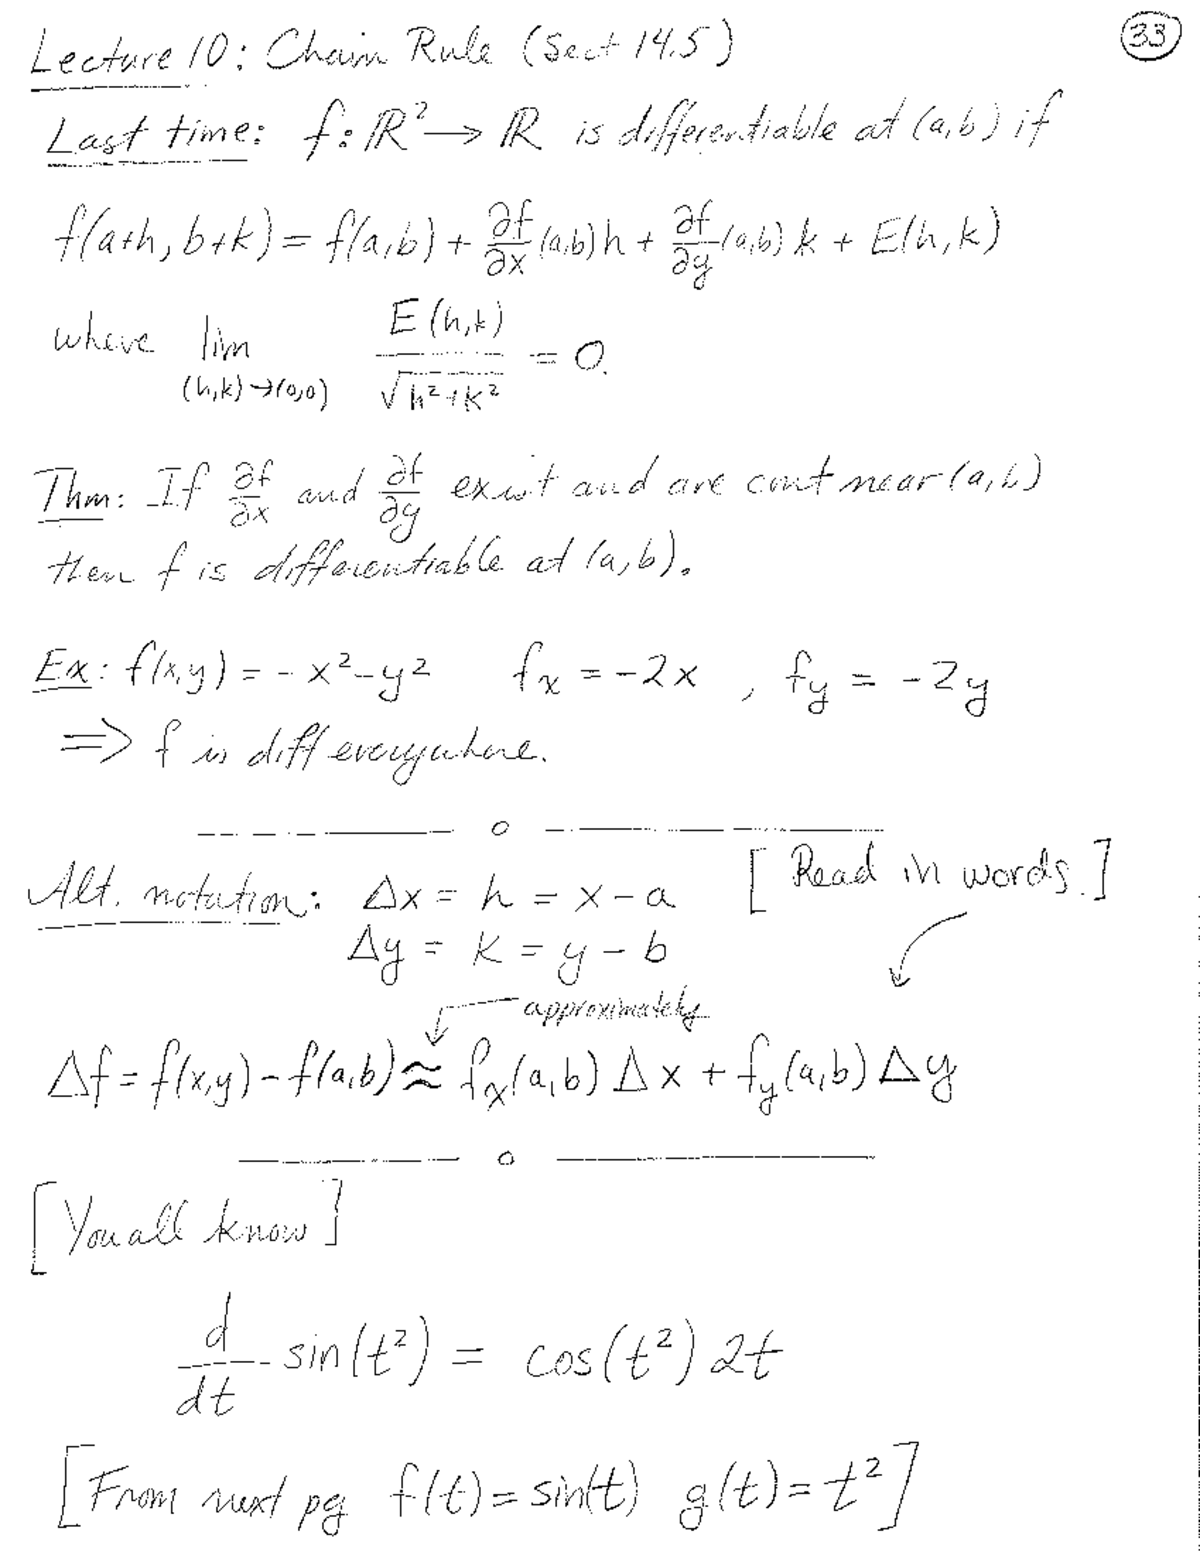 Lecture 10: Chain Rule (Sect 14.5)
33
Last time: f: ℝ² → ℝ is differentiable at (a,b) if
f(a+h, b+k) = f(a,b) + ∂f/∂x (a,b) h + ∂f/∂y (a,b) k + E(h,k)
where lim (h,k)→(0,0) E(h,k)/√h²+k² = 0.
Thm: If ∂f/∂x and ∂f/∂y exist and are cont near (a,b)
then f is differentiable at (a,b).
Ex: f(x,y) = -x²-y² fx = -2x , fy = -2y
⇒ f is diff everywhere.
Alt. notation: Δx = h = x - a [Read in words.]
Δy = k = y - b
approximately
Δf = f(x,y) - f(a,b) ≈ fx(a,b) Δx + fy(a,b) Δy
[You all know]
d/dt sin(t²) = cos(t²) 2t
[From next pg f(t) = sin(t) g(t) = t²]